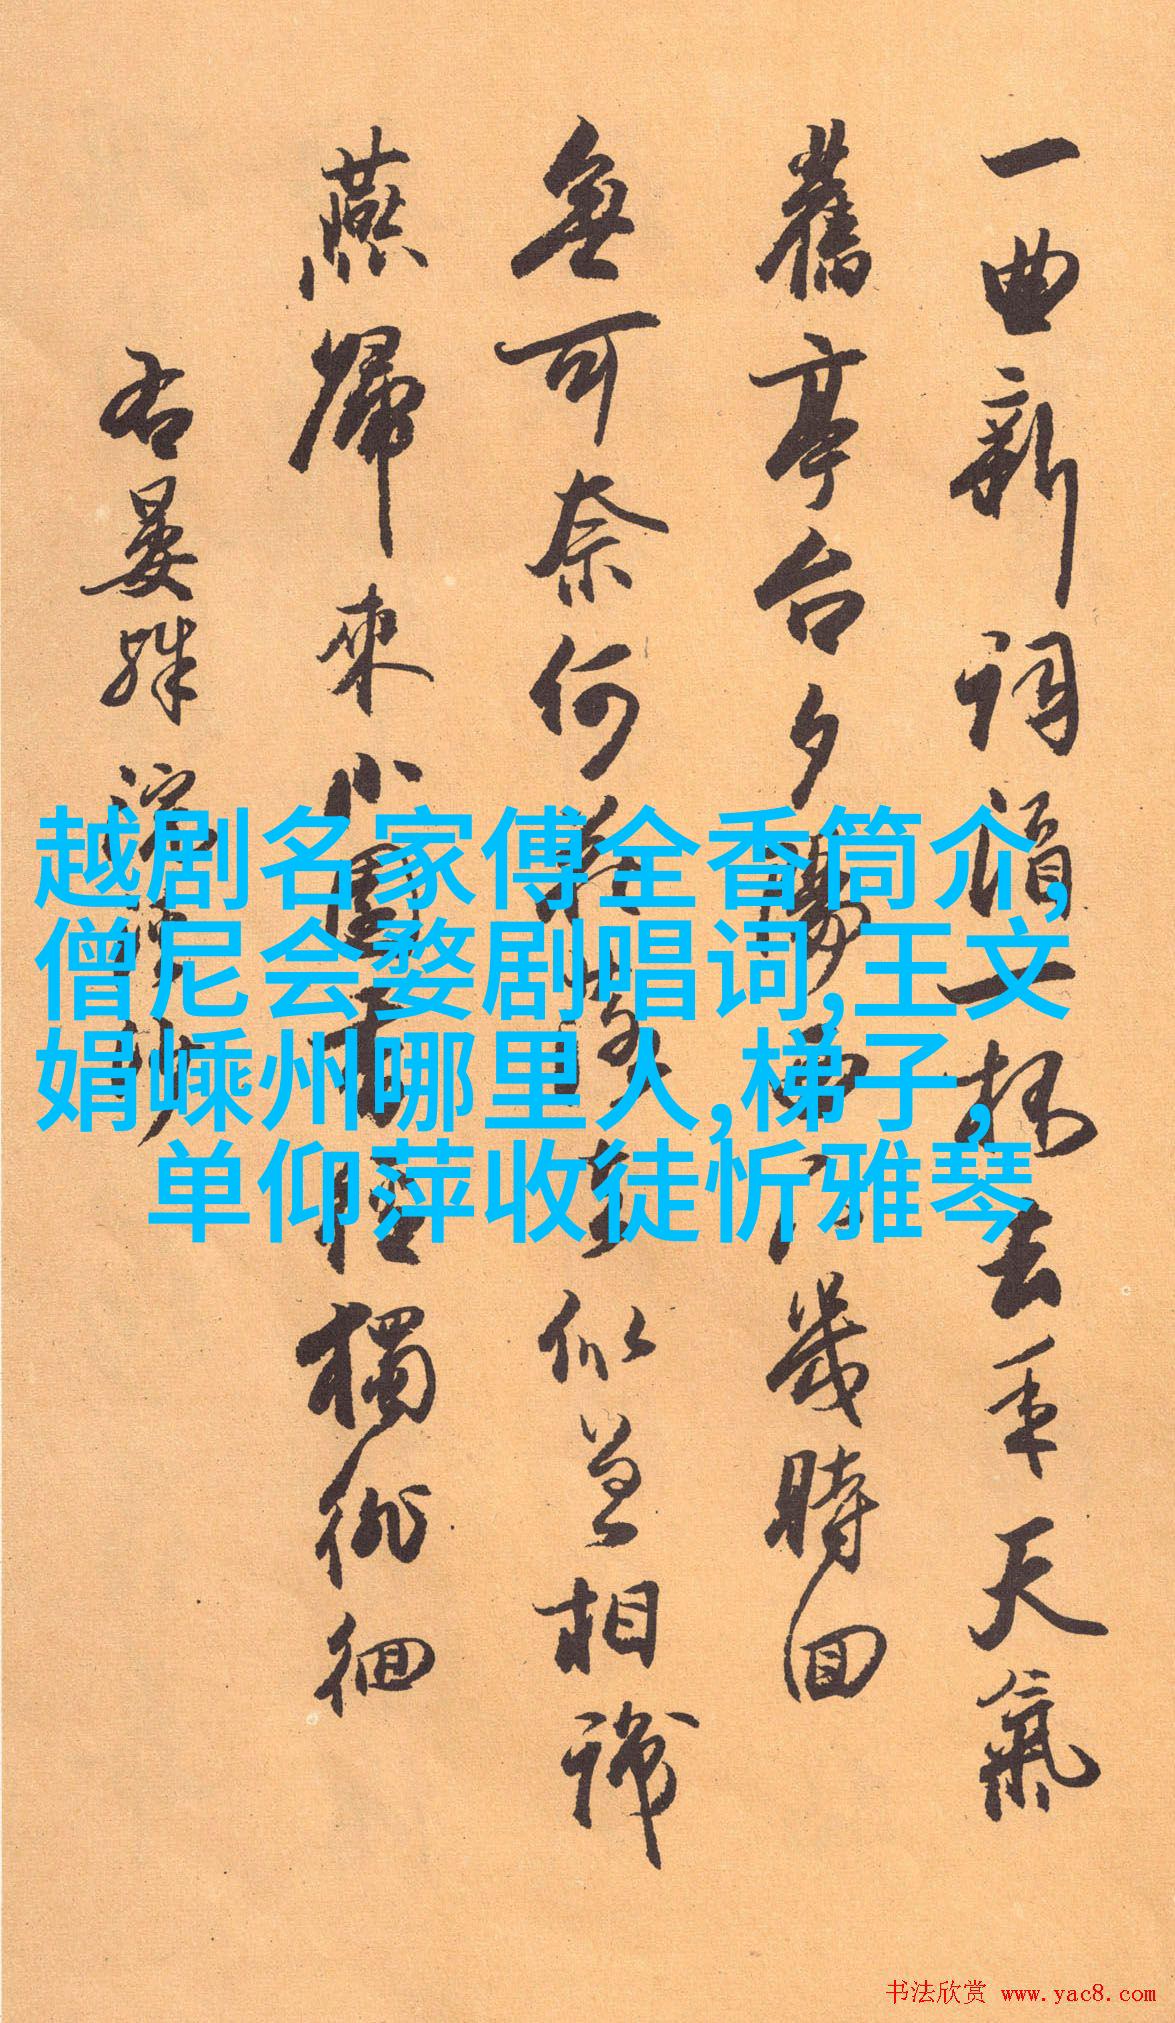 一曲新詞酒一杯去年天氣
舊亭台夕陽西下幾時回
無可奈何花落去似曾相識
燕歸來小園香徑獨徘徊
右晏殊浣溪沙
越剧名家傅全香筒介,
僧尼会婺剧唱词,王文
娟嵊州哪里人,梯子,
单仰萍收徒忻雅琴
书法欣赏 www.yac8.com